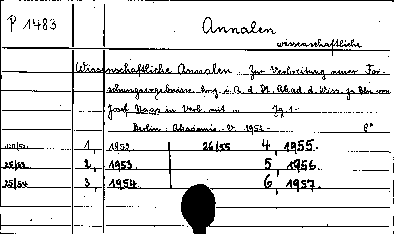 P 1483
Annalen
wissenschaftliche
Wissenschaftliche Annalen. Zur Verbreitung neuer For-
schungsergebnisse. Hrsg. i. A. d. Dt. Akad. d. Wiss. zu Bln. von
Josef Naas in Verb. mit Jg. 1-
Berlin: Akademie-V. 1952- 8°
1, 1952. 26/55 4, 1955.
25/53 2, 1953. 5, 1956.
25/54 3, 1954. 6, 1957.